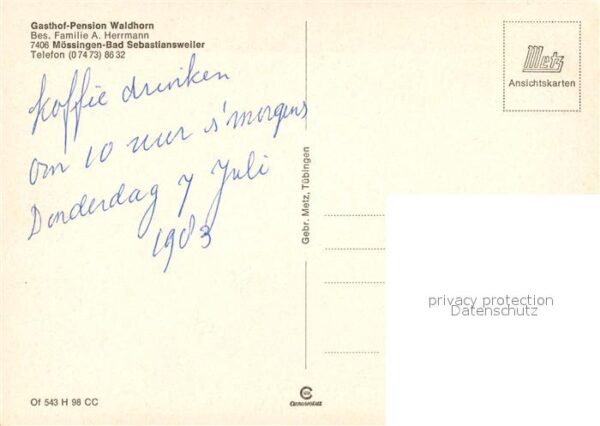 Gasthof-Pension Waldhorn
Bes. Familie A. Herrmann
7406 Mössingen-Bad Sebastiansweiler
Telefon (0 74 73) 86 32
koffie drinken
om 10 uur s'morgens
Donderdag 7 Juli
1983
Gebr. Metz, Tübingen
Metz
Ansichtskarten
privacy protection
Datenschutz
Of 543 H 98 CC